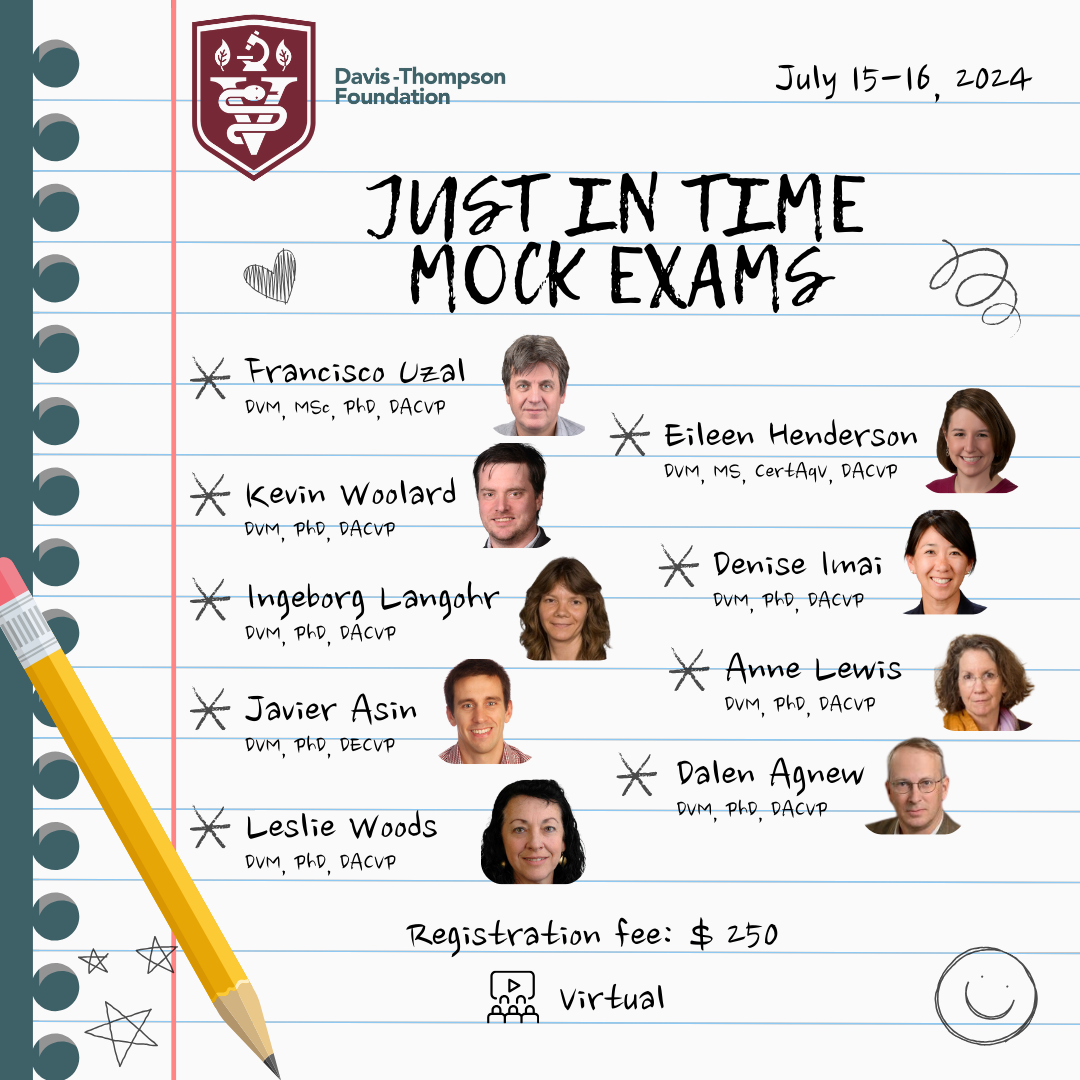 Davis-Thompson
Foundation
July 15-16, 2024
JUST IN TIME
MOCK EXAMS
Francisco Uzal
DVM, MSc, PhD, DACVP
Eileen Henderson
DVM, MS, CertAqV, DACVP
Kevin Woolard
DVM, PhD, DACVP
Denise Imai
DVM, PhD, DACVP
Ingeborg Langohr
DVM, PhD, DACVP
Anne Lewis
DVM, PhD, DACVP
Javier Asin
DVM, PhD, DECVP
Dalen Agnew
DVM, PhD, DACVP
Leslie Woods
DVM, PhD, DACVP
Registration fee: $ 250
Virtual